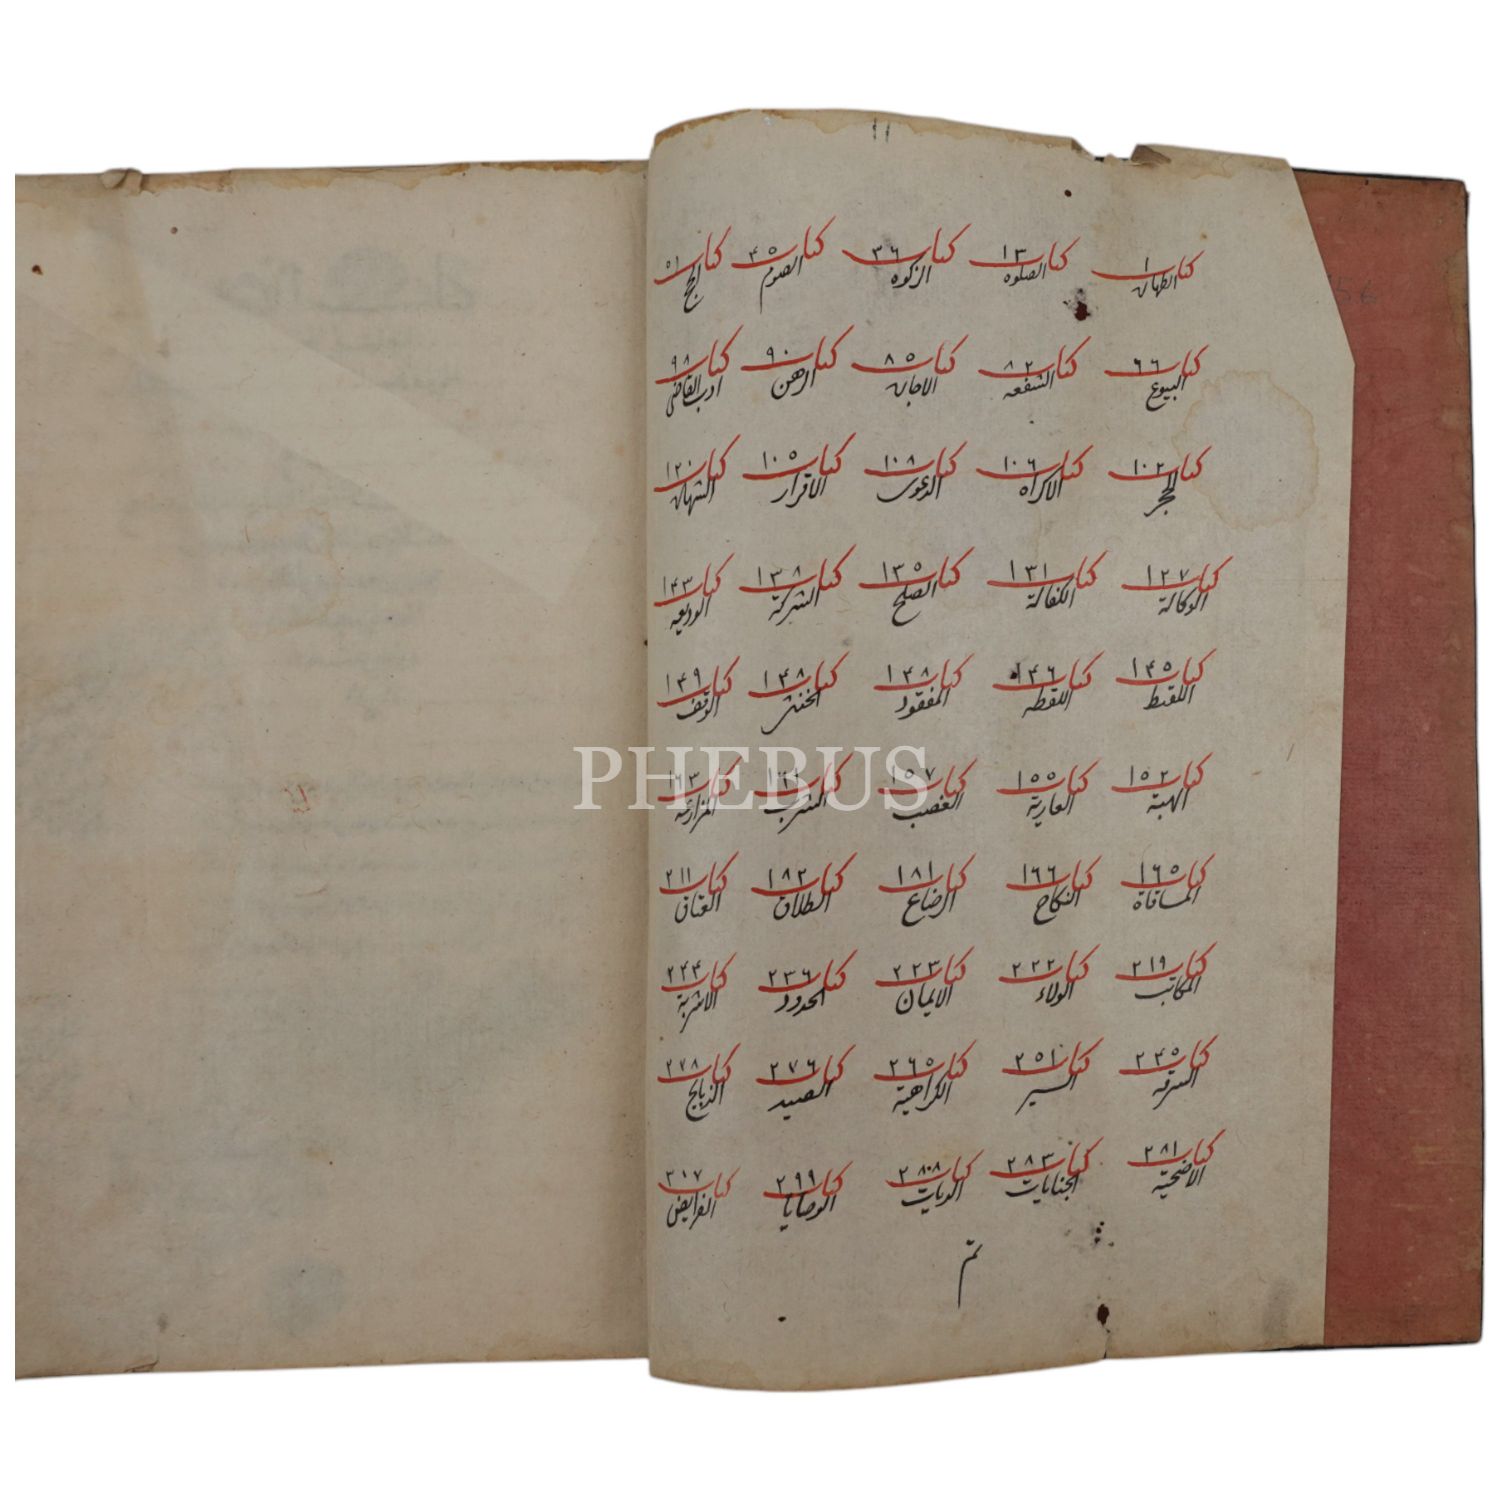 كتاب ١ الطهارة كتاب ١٣ الصلوة كتاب ٣٦ الزكوة كتاب ٤٥ الصوم كتاب ٥١ الحج
كتاب ٦٦ البيوع كتاب ٨٢ الشفعه كتاب ٨٥ الاجارة كتاب ٩٠ الرهن كتاب ٩٨ ادب القاضى
كتاب ١٠٢ الحجر كتاب ١٠٦ الاكراه كتاب ١٠٨ الدعوى كتاب ١٠٥ الاقرار كتاب ١٢٠ الشهادة
كتاب ١٢٧ الوكالة كتاب ١٣١ الكفالة كتاب ١٣٥ الصلح كتاب ١٣٨ الشركة كتاب ١٤٣ الوديعه
كتاب ١٤٥ اللقيط كتاب ١٤٦ اللقطه كتاب ١٤٨ المفقود كتاب ١٤٨ الخنثى كتاب ١٤٩ الوقف
كتاب ١٥٢ الهبة كتاب ١٥٥ العارية كتاب ١٥٧ الغصب كتاب الشرب كتاب ١٦٣ المزارعه
PHEBUS
كتاب ١٦٥ المساقاة كتاب ١٦٦ النكاح كتاب ١٨١ الرضاع كتاب ١٨٢ الطلاق كتاب ٢١١ العتاق
كتاب ٢١٩ المكاتب كتاب ٢٢٢ الولاء كتاب ٢٢٣ الايمان كتاب ٢٣٦ الحدود كتاب ٢٤٤ الاشربة
كتاب ٢٤٥ السرقه كتاب ٢٥١ السير كتاب ٢٦٥ الكراهية كتاب ٢٧٦ الصيد كتاب ٢٧٨ الذبايح
كتاب ٢٨١ الاضحية كتاب ٢٨٣ الجنايات كتاب الديات كتاب ٢٩٩ الوصايا كتاب ٣٠٧ الفرايض
تم